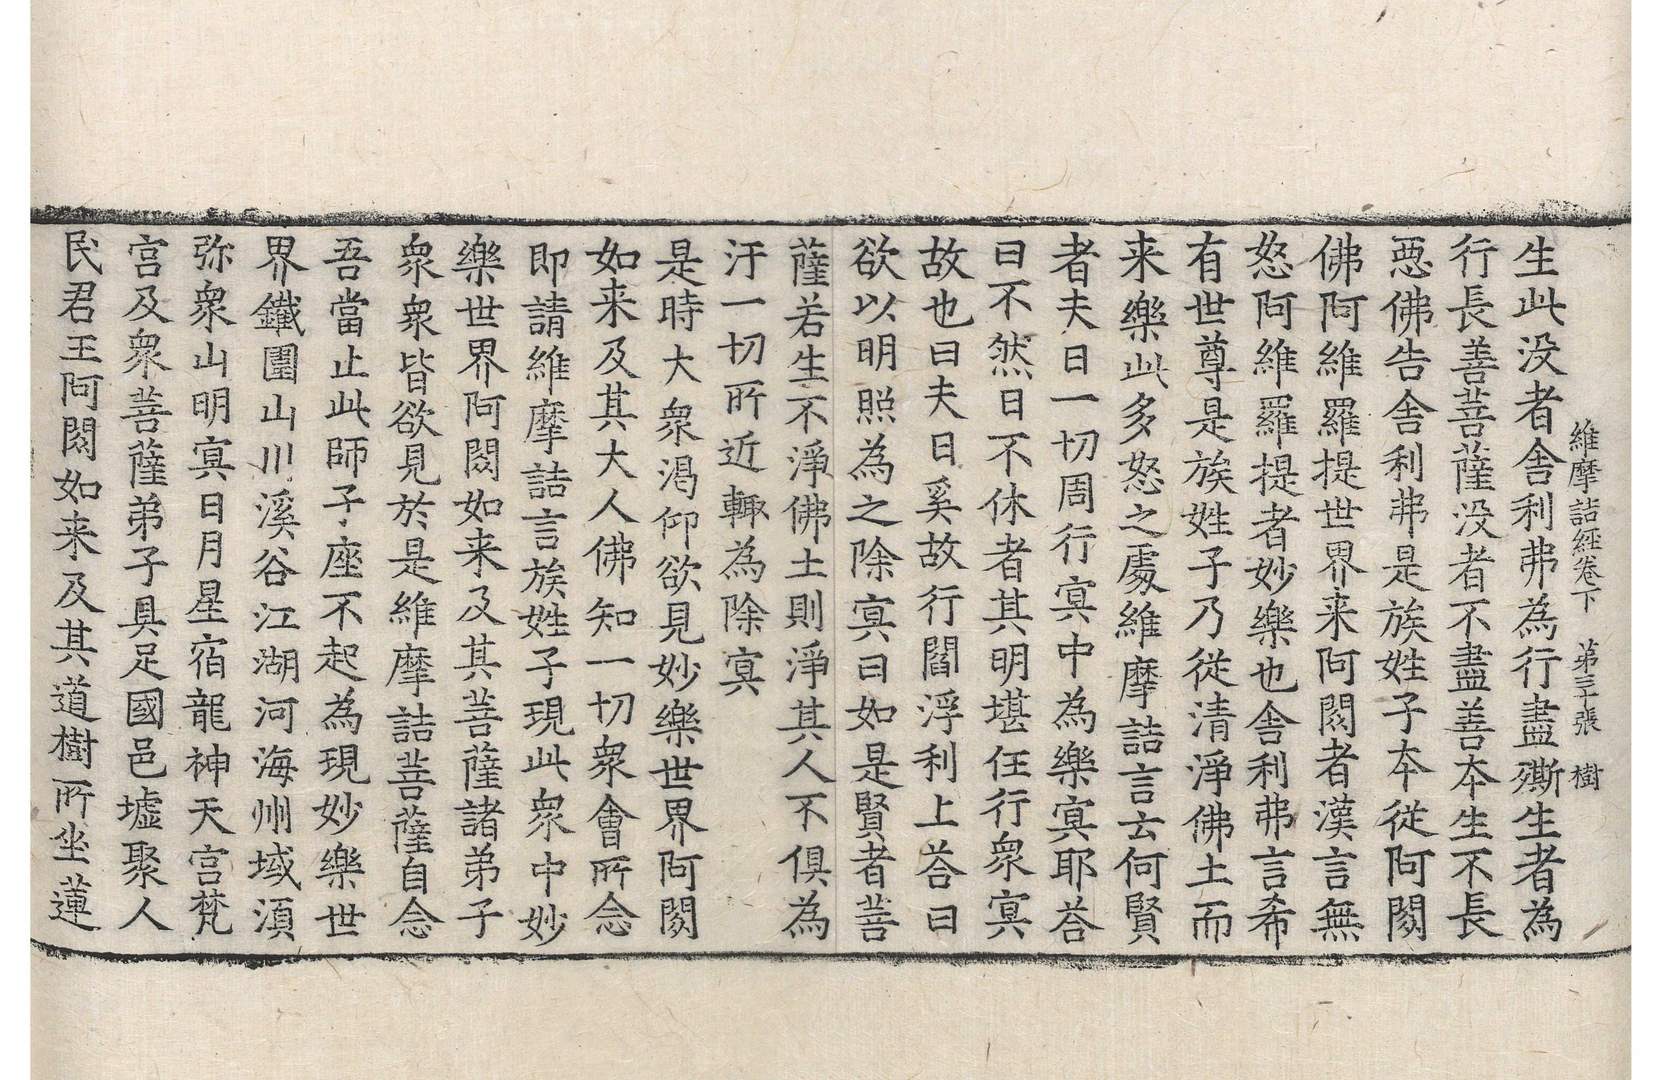 維摩詰經卷下 第三十張 樹
生此没者舎利弗為行盡㒋生者為
行長善菩薩没者不盡善夲生不長
惡佛告舎利弗是族姓子夲従阿閦
佛阿維羅提世界来阿閦者漢言無
怒阿維羅提者妙樂也舎利弗言希
有世尊是族姓子乃従清淨佛土而
来樂此多怒之處維摩詰言云何賢
者夫日一切周行㝠中為樂㝠耶荅
曰不然日不休者其明堪任行衆㝠
故也曰夫日奚故行閻浮利上荅曰
欲以明照為之除㝠曰如是賢者菩
薩若生不淨佛土則淨其人不俱為
汙一切所近輙為除㝠
是時大衆渇仰欲見妙樂世界阿閦
如来及其大人佛知一切衆會所念
即請維摩詰言族姓子現此衆中妙
樂世界阿閦如来及其菩薩諸弟子
衆衆皆欲見於是維摩詰菩薩自念
吾當止此師子座不起為現妙樂世
界鐵圍山川溪谷江湖河海州域湏
弥衆山明㝠日月星宿龍神天宮梵
宮及衆菩薩弟子具足國邑墟聚人
民君王阿閦如来及其道樹所坐蓮